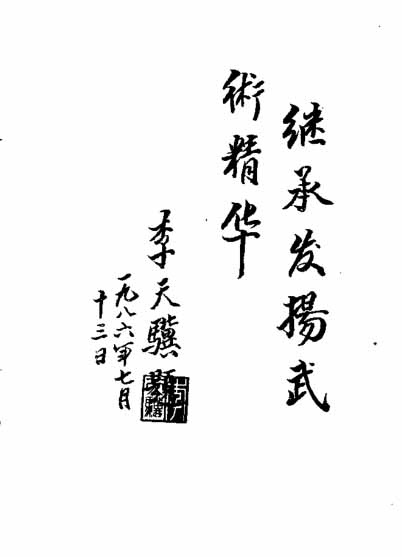 继承发揚武
術精华
李天驥題
一九八六年七月
十三日